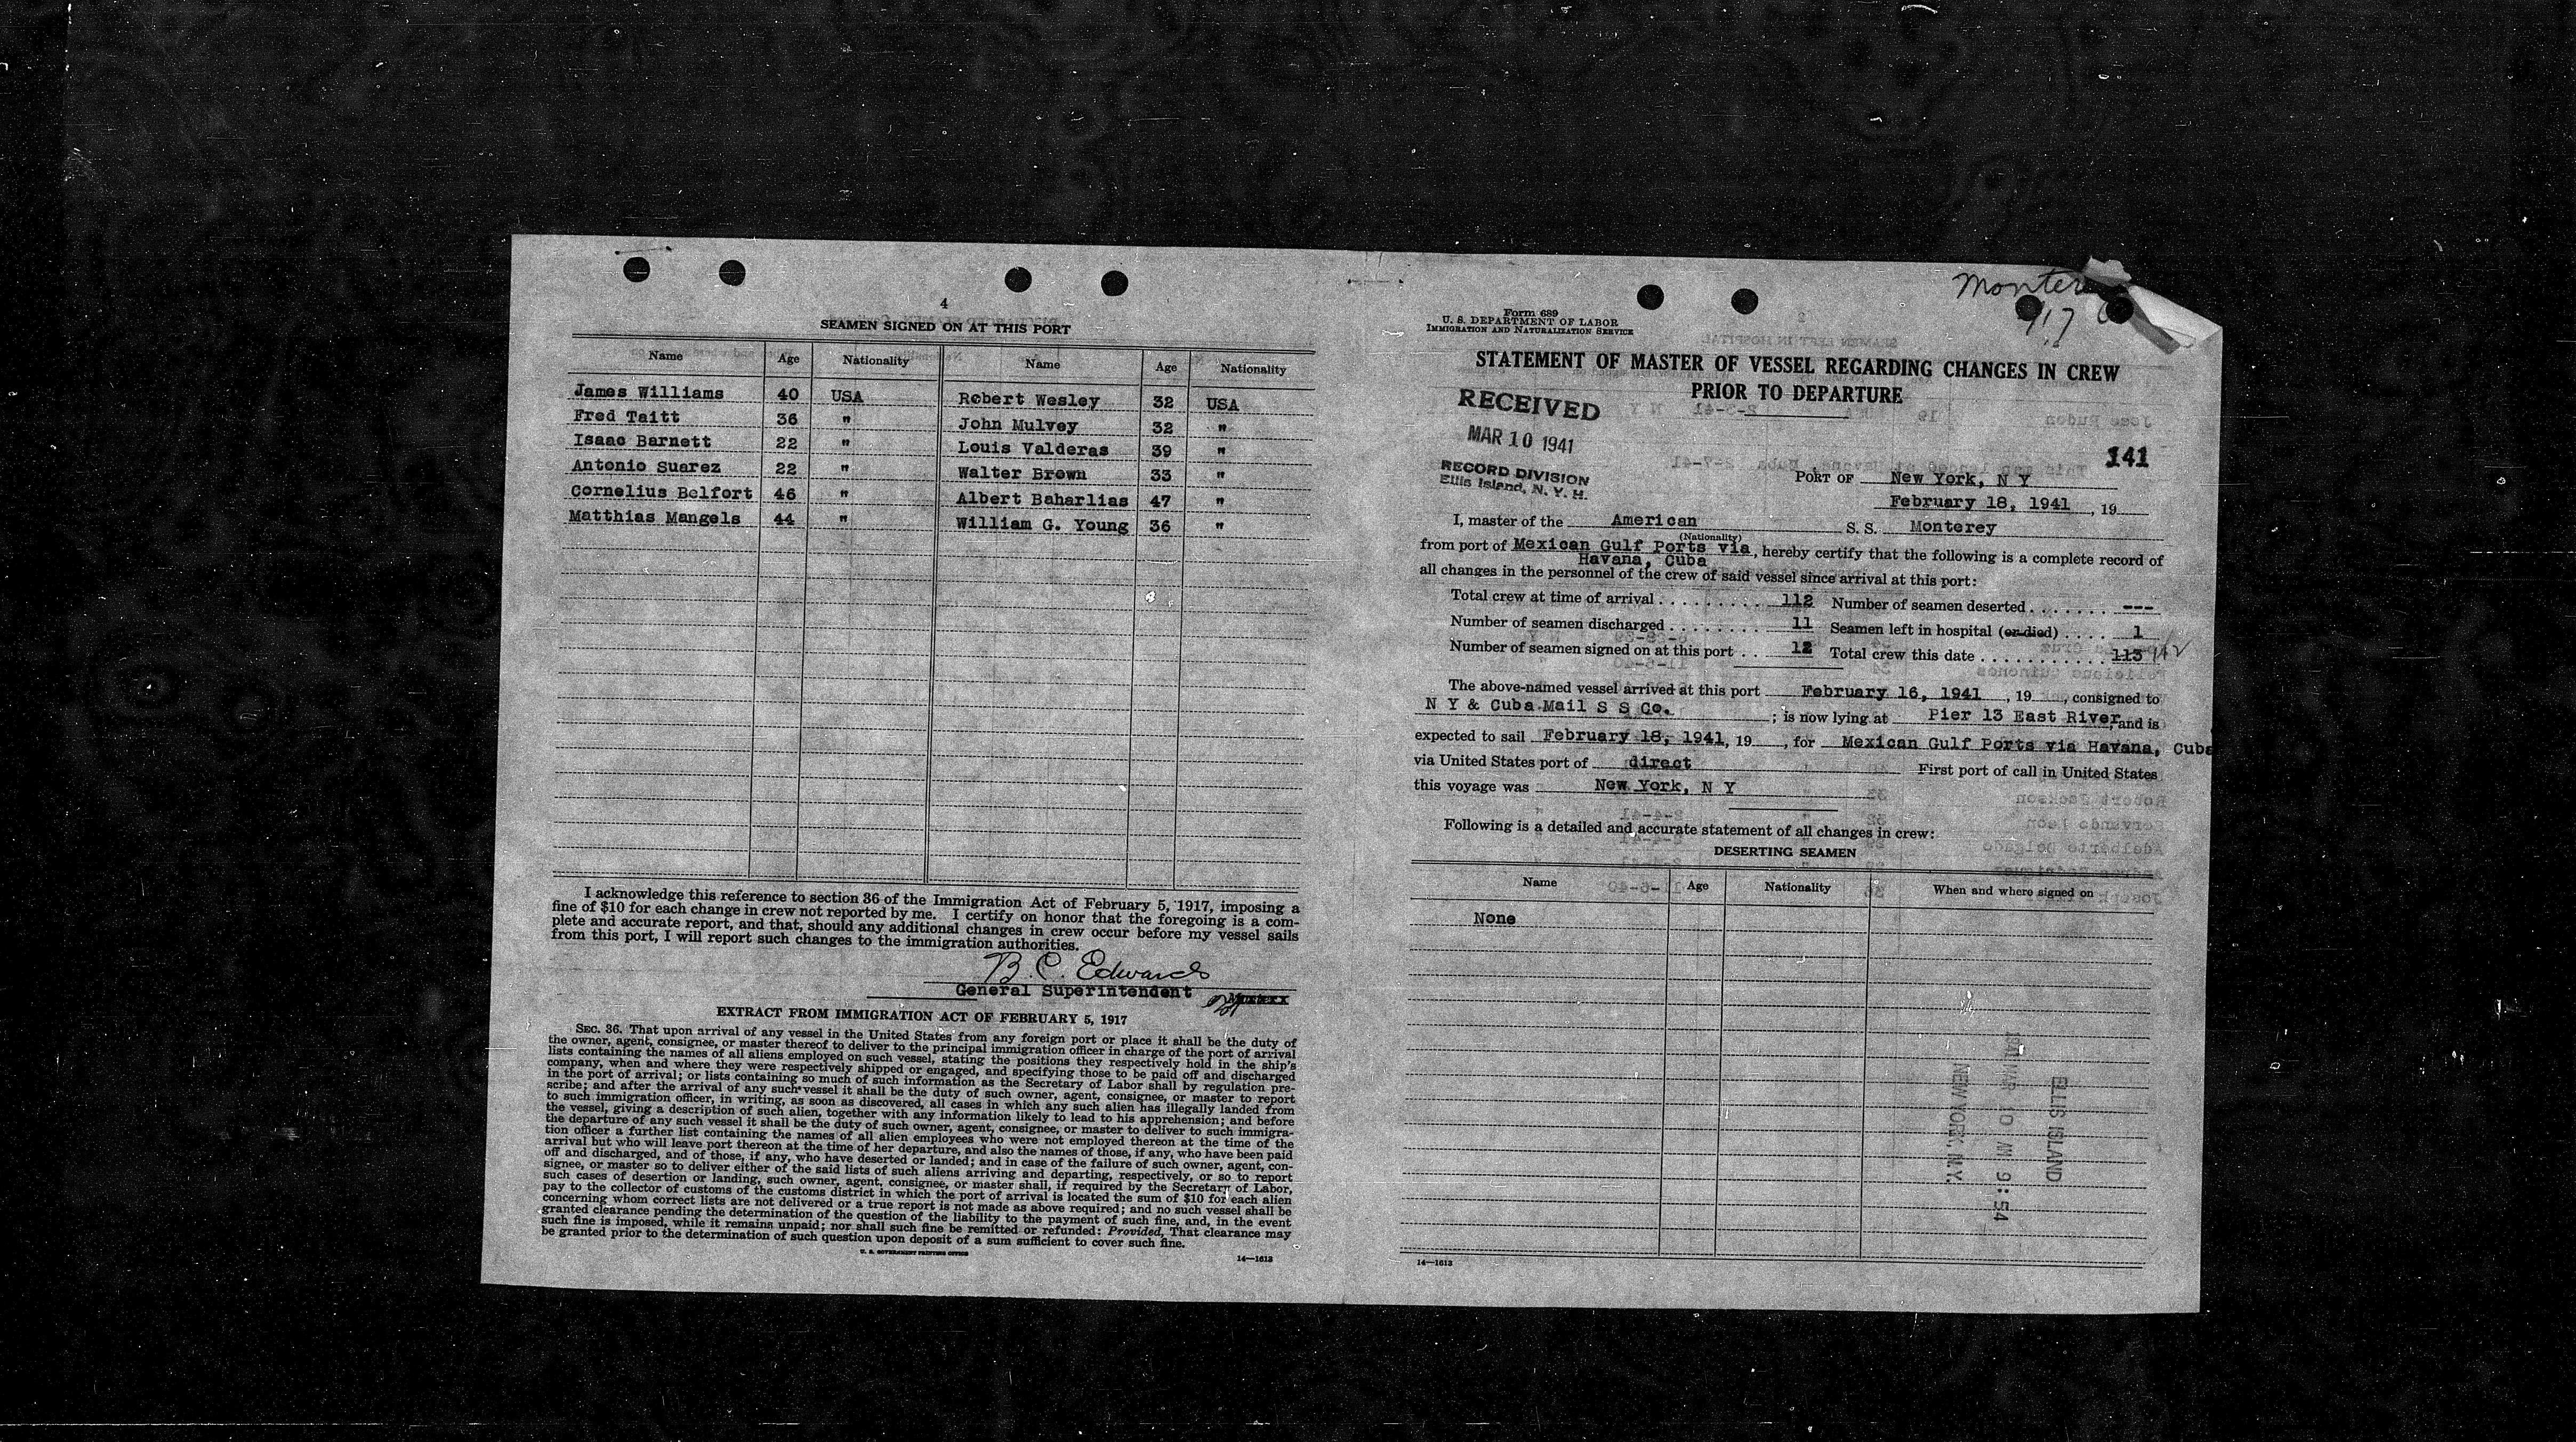 4
SEAMEN SIGNED ON AT THIS PORT
Name Age Nationality Name Age Nationality
James Williams 40 USA Robert Wesley 32 USA
Fred Taitt 36 " John Mulvey 32 "
Isaac Barnett 22 " Louis Valderas 39 "
Antonio Suarez 22 " Walter Brown 33 "
Cornelius Belfort 46 " Albert Baharlias 47 "
Matthias Mangels 44 " William G. Young 36 "
I acknowledge this reference to section 36 of the Immigration Act of February 5, 1917, imposing a
fine of $10 for each change in crew not reported by me. I certify on honor that the foregoing is a com-
plete and accurate report, and that, should any additional changes in crew occur before my vessel sails
from this port, I will report such changes to the immigration authorities.
B. C. Edwards
General Superintendent
EXTRACT FROM IMMIGRATION ACT OF FEBRUARY 5, 1917
SEC. 36. That upon arrival of any vessel in the United States from any foreign port or place it shall be the duty of
the owner, agent, consignee, or master thereof to deliver to the principal immigration officer in charge of the port of arrival
lists containing the names of all aliens employed on such vessel, stating the positions they respectively hold in the ship's
company, when and where they were respectively shipped or engaged, and specifying those to be paid off and discharged
in the port of arrival; or lists containing so much of such information as the Secretary of Labor shall by regulation pre-
scribe; and after the arrival of any such vessel it shall be the duty of such owner, agent, consignee, or master to report
to such immigration officer, in writing, as soon as discovered, all cases in which any such alien has illegally landed from
the vessel, giving a description of such alien, together with any information likely to lead to his apprehension; and before
the departure of any such vessel it shall be the duty of such owner, agent, consignee, or master to deliver to such immigra-
tion officer a further list containing the names of all alien employees who were not employed thereon at the time of the
arrival but who will leave port thereon at the time of her departure, and also the names of those, if any, who have been paid
off and discharged, and of those, if any, who have deserted or landed; and in case of the failure of such owner, agent, con-
signee, or master so to deliver either of the said lists of such aliens arriving and departing, respectively, or so to report
such cases of desertion or landing, such owner, agent, consignee, or master shall, if required by the Secretary of Labor,
pay to the collector of customs of the customs district in which the port of arrival is located the sum of $10 for each alien
concerning whom correct lists are not delivered or a true report is not made as above required; and no such vessel shall be
granted clearance pending the determination of the question of the liability to the payment of such fine, and, in the event
such fine is imposed, while it remains unpaid; nor shall such fine be remitted or refunded: Provided, That clearance may
be granted prior to the determination of such question upon deposit of a sum sufficient to cover such fine.
U. S. GOVERNMENT PRINTING OFFICE
14—1613
Form 689
U. S. DEPARTMENT OF LABOR
IMMIGRATION AND NATURALIZATION SERVICE
STATEMENT OF MASTER OF VESSEL REGARDING CHANGES IN CREW
PRIOR TO DEPARTURE
RECEIVED
MAR 10 1941
RECORD DIVISION
Ellis Island, N. Y. H.
141
PORT OF New York, N Y
February 18, 1941, 19
I, master of the American S. S. Monterey
(Nationality)
from port of Mexican Gulf Ports via, hereby certify that the following is a complete record of
Havana, Cuba
all changes in the personnel of the crew of said vessel since arrival at this port:
Total crew at time of arrival . . . . . . . . . 112 Number of seamen deserted . . . . . . . ---
Number of seamen discharged . . . . . . . . 11 Seamen left in hospital (or died) . . . . 1
Number of seamen signed on at this port . . 12 Total crew this date . . . . . . . . . . . 113 112
The above-named vessel arrived at this port February 16, 1941, 19, consigned to
N Y & Cuba Mail S S Co. ; is now lying at Pier 13 East River, and is
expected to sail February 18, 1941, 19, for Mexican Gulf Ports via Havana, Cuba
via United States port of direct First port of call in United States
this voyage was New York, N Y
Following is a detailed and accurate statement of all changes in crew:
DESERTING SEAMEN
Name Age Nationality When and where signed on
None
ELLIS ISLAND
1941 MAR 10 AM 9:54
NEW YORK, N.Y.
14—1613